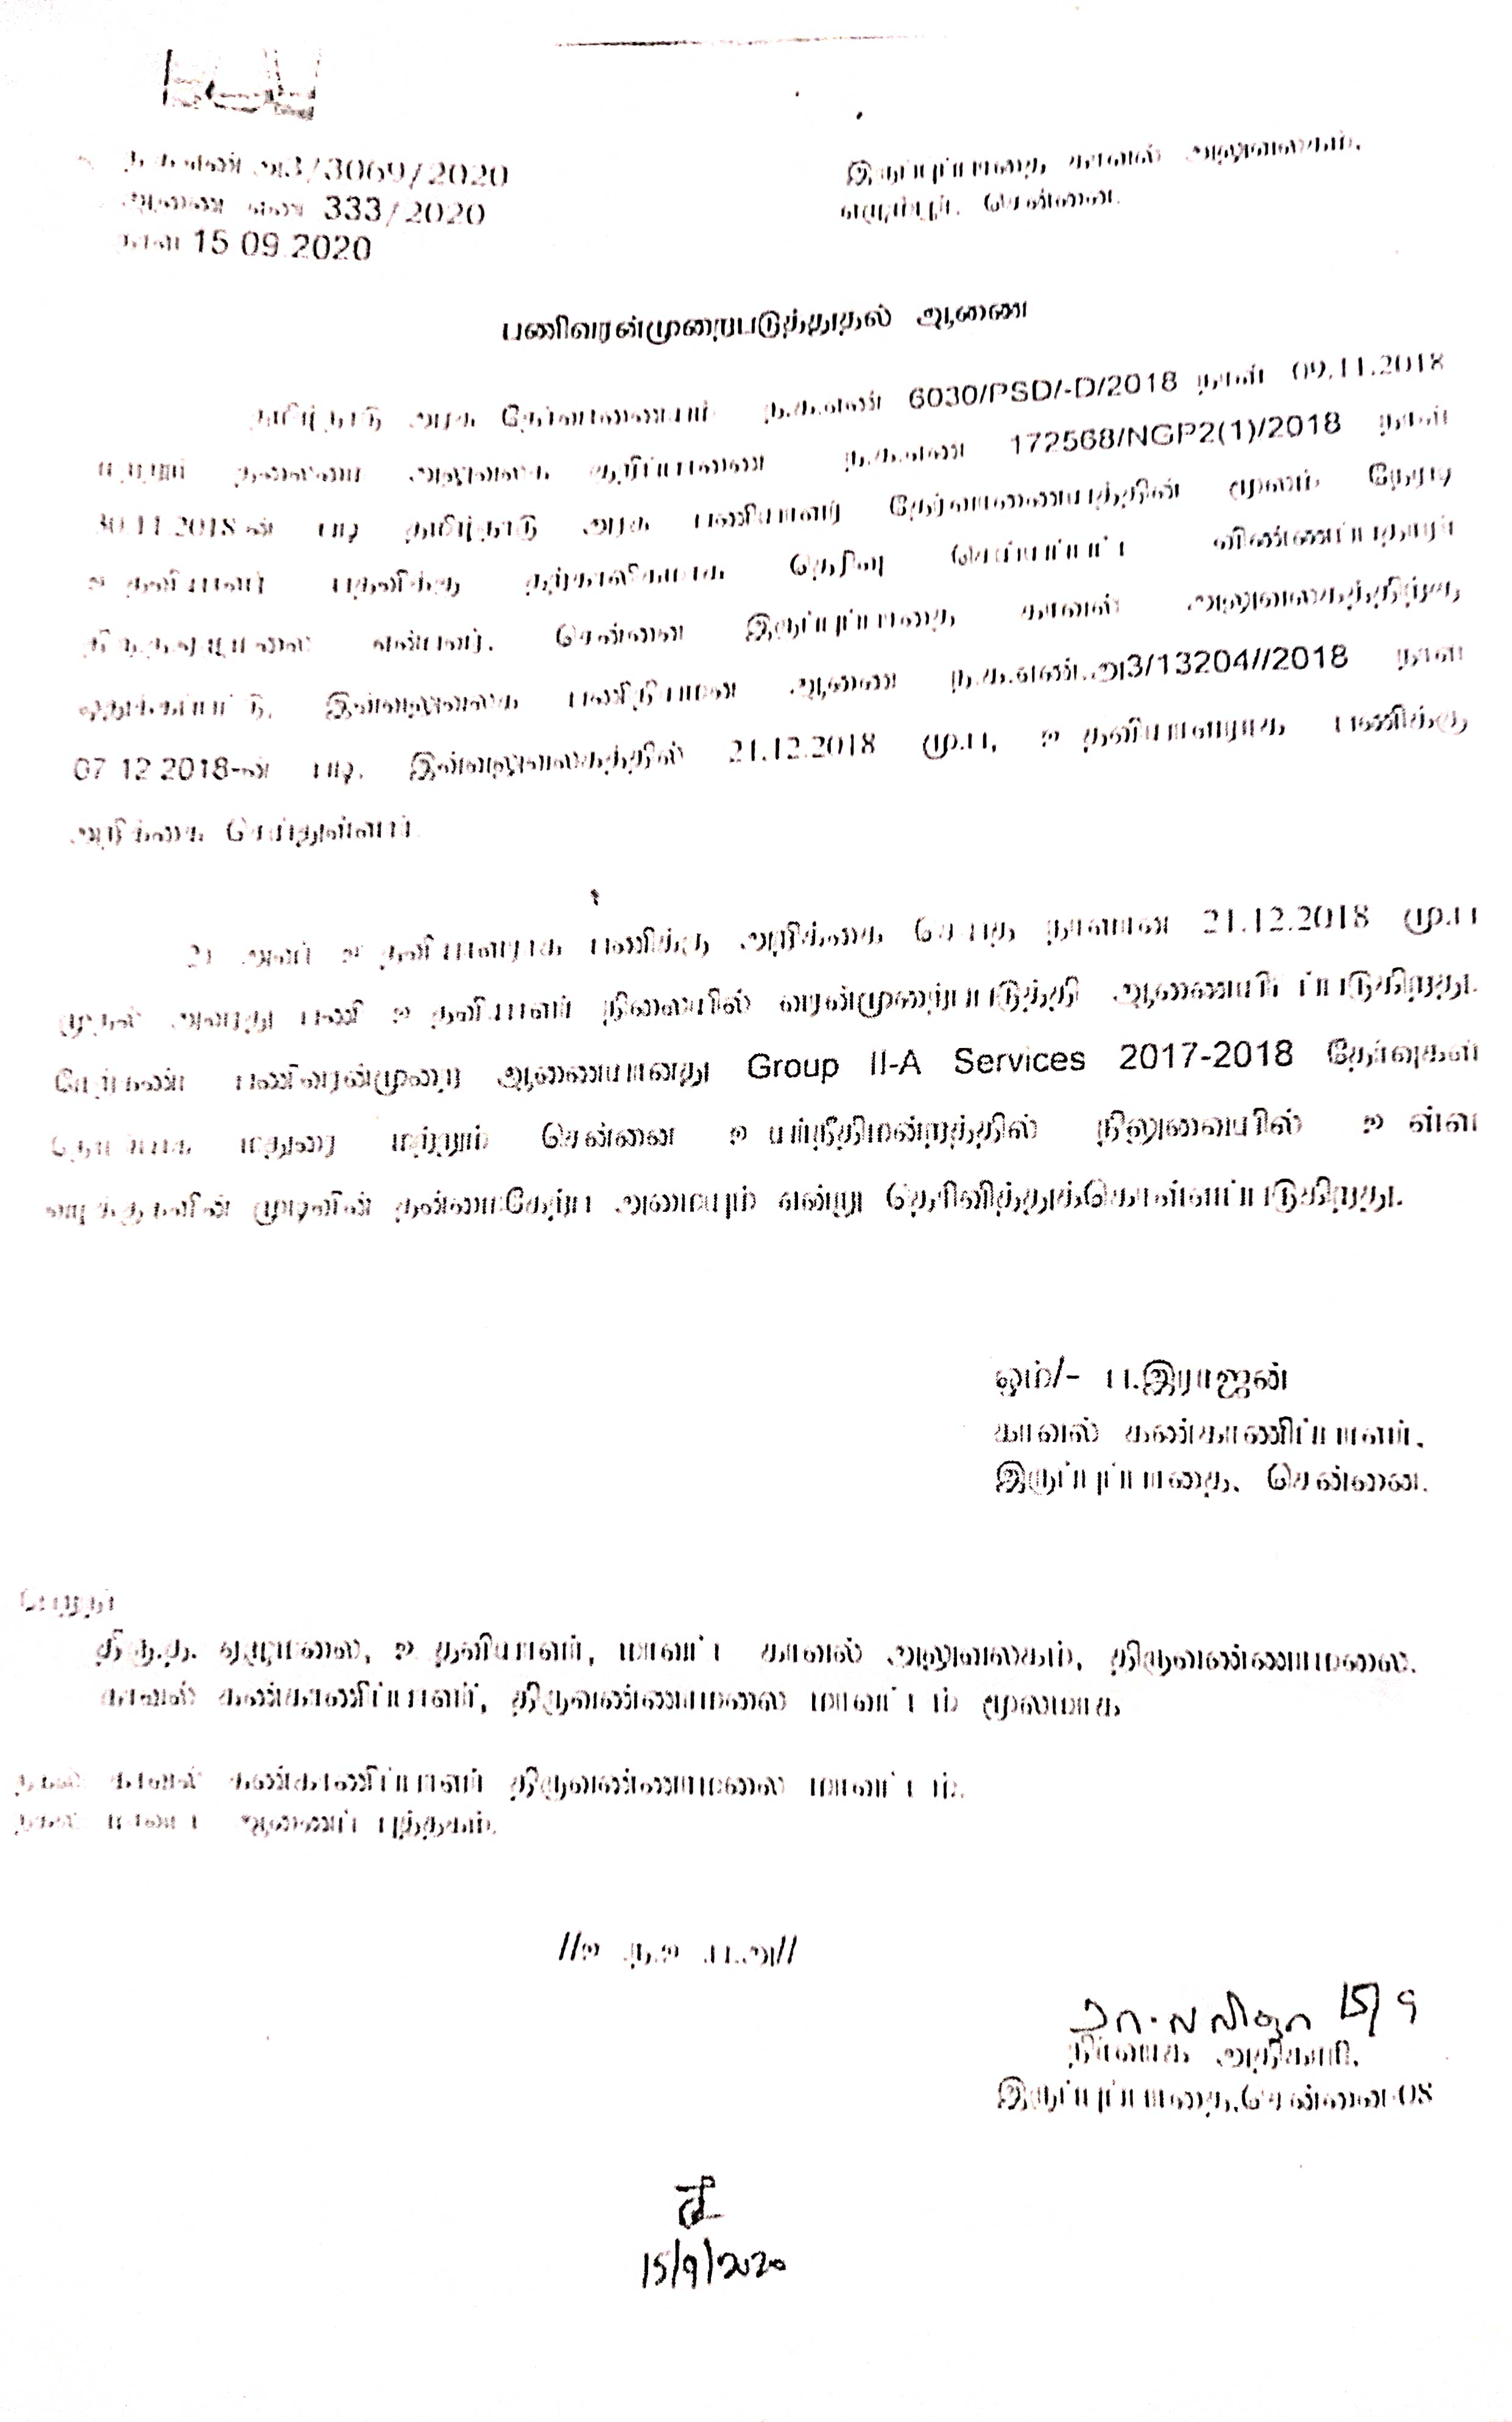 ந.க.எண் அ3/3069/2020
ஆணை எண் 333/2020
நாள் 15.09.2020
இருப்புப்பாதை காவல் அலுவலகம்,
எழும்பூர், சென்னை.
பணிவரன்முறைபடுத்துதல் ஆணை
தமிழ்நாடு அரசு தேர்வாணையம் ந.க.எண் 6030/PSD/-D/2018 நாள் 09.11.2018
மற்றும் தலைமை அலுவலக குறிப்பாணை ந.க.எண் 172568/NGP2(1)/2018 நாள்
30.11.2018-ன் படி தமிழ்நாடு அரசு பணியாளர் தேர்வாணையத்தின் மூலம் நேரடி
உதவியாளர் பதவிக்கு தற்காலிகமாக தெரிவு செய்யப்பட்ட விண்ணப்பதாரர்
என்பவர், சென்னை இருப்புப்பாதை காவல் அலுவலகத்திற்கு
ஒதுக்கப்பட்டு, இவ்வலுவலக பணிநியமன ஆணை ந.க.எண்.அ3/13204//2018 நாள்
07.12.2018-ன் படி, இவ்வலுவலகத்தில் 21.12.2018 மு.ப, உதவியாளராக பணிக்கு
அறிக்கை செய்துள்ளார்.
2) அவர் உதவியாளராக பணிக்கு அறிக்கை செய்த நாளான 21.12.2018 மு.ப
முதல் அவரது பணி உதவியாளர் நிலையில் வரன்முறைப்படுத்தி ஆணையிடப்படுகிறது.
மேற்கண்ட பணிவரன்முறை ஆணையானது Group II-A Services 2017-2018 தேர்வுகள்
தொடர்பாக மதுரை மற்றும் சென்னை உயர்நீதிமன்றத்தில் நிலுவையில் உள்ள
வழக்குகளின் முடிவின் தன்மைகேற்ப அமையும் என்று தெரிவித்துக்கொள்ளப்படுகிறது.
ஓம்/- ப.இராஜன்
காவல் கண்காணிப்பாளர்,
இருப்புப்பாதை, சென்னை.
பெறுநர்
திரு.க. ஏழுமலை, உதவியாளர், மாவட்ட காவல் அலுவலகம், திருவண்ணாமலை.
காவல் கண்காணிப்பாளர், திருவண்ணாமலை மாவட்டம் மூலமாக
நகல் காவல் கண்காணிப்பாளர் திருவண்ணாமலை மாவட்டம்.
நகல் மாவட்ட ஆணைப் புத்தகம்.
//உ.த.உ.ப.அ//
15/9
நிர்வாக அதிகாரி,
இருப்புப்பாதை,சென்னை-08
15/9/2020